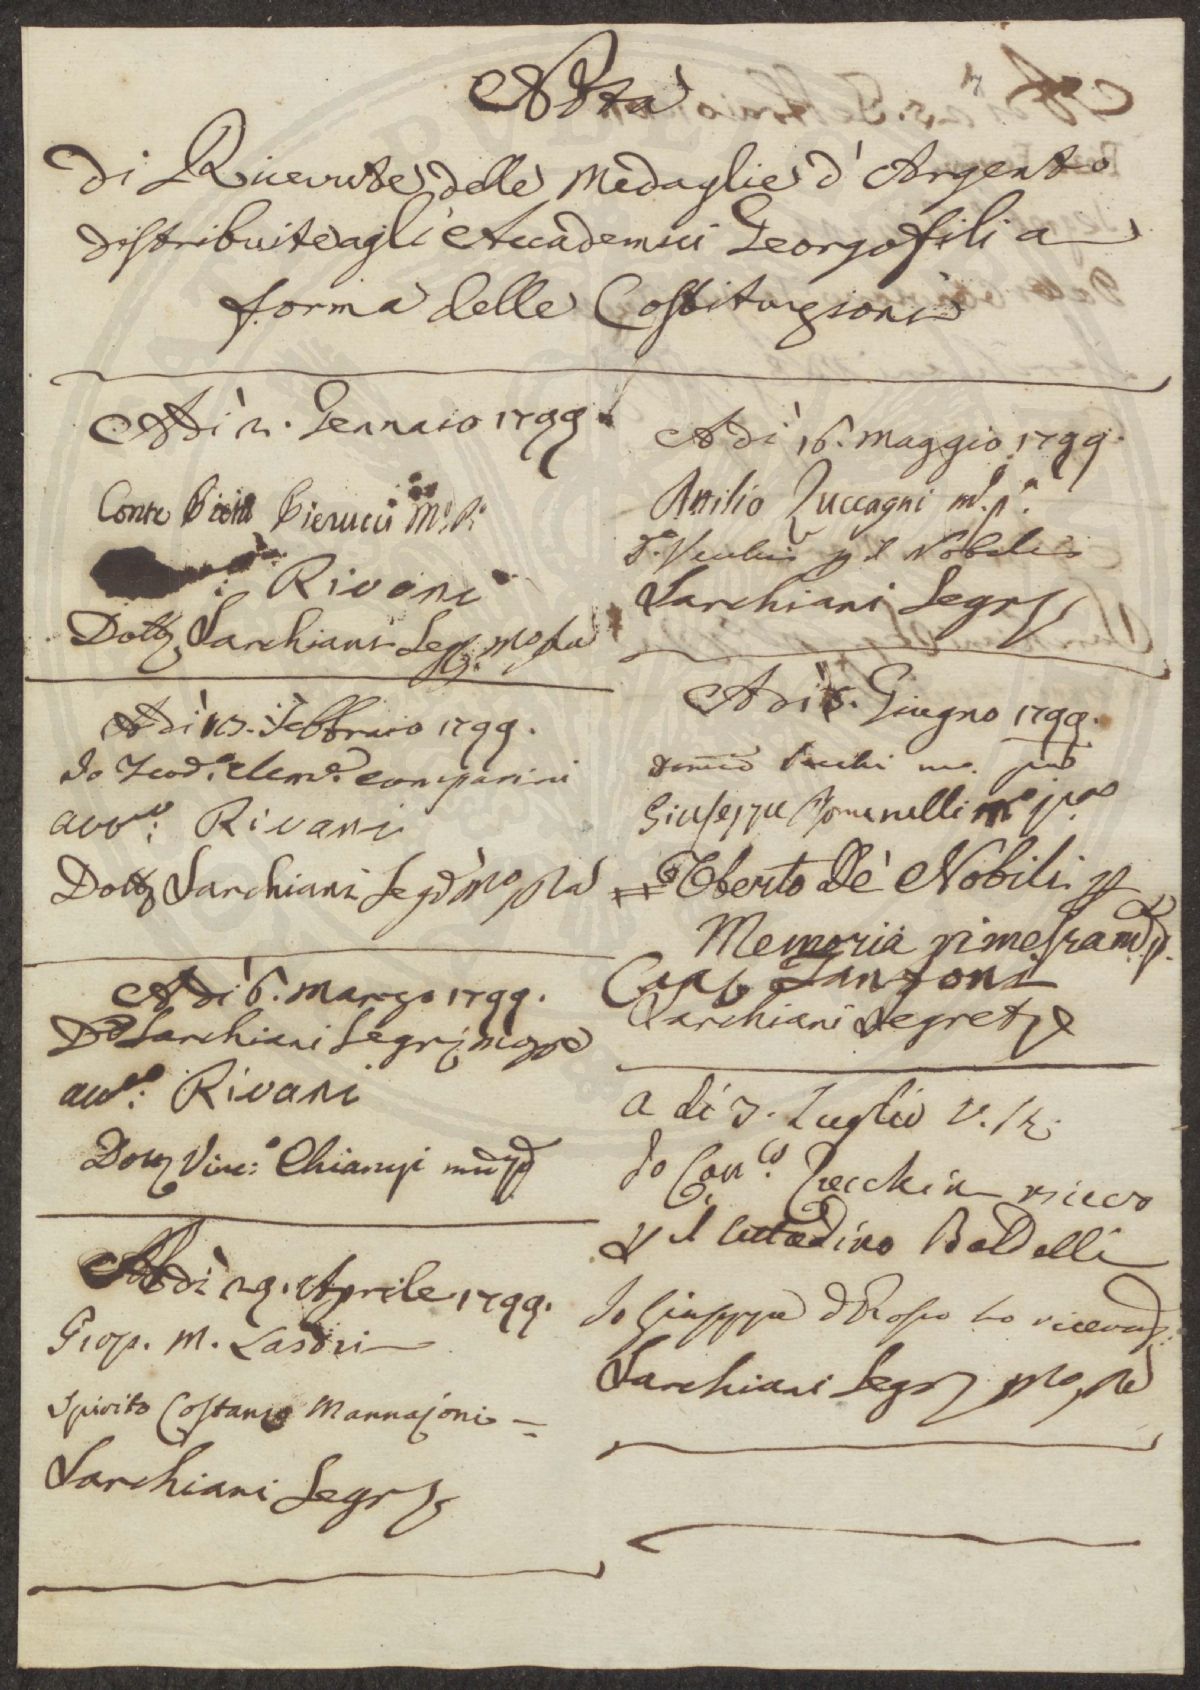 Nota
di Ricevute delle Medaglie d'Argento
distribuite agli Accademici Georgofili a
forma delle Costituzioni
Adì 2. Gennaio 1799.
Conte Pierucci M. P.
Rivani
Dott. Sarchiani Seg. mo. pa.
Adì 13. Febbraio 1799.
Io Clem. Comparini
Avv.: Rivani
Dott. Sarchiani Seg. mo. pa.
Adì 6. Marzo 1799.
Do. Sarchiani Segr. mo. pa.
Avv.: Rivani
Dott. Vinc.: Chiarugi
Adì 29. Aprile 1799.
Prop. M. Lastri
Spirito Costanzo Mannajoni
Sarchiani Segr.
Adì 16. Maggio 1799.
Attilio Zuccagni m. p.
Sarchiani Segr.
Adì Giugno 1799.
Giuseppe Tomanelli mo. po.
Uberto De' Nobili p.
Memoria
Zanzoni
Sarchiani Segret.
a dì 3. Luglio
Io Can.co Zecchin ricevo
p. il Cittadino Baldelli
Io Giuseppe Del Rosso ho ricevuto
Sarchiani Segr. mo. pa.